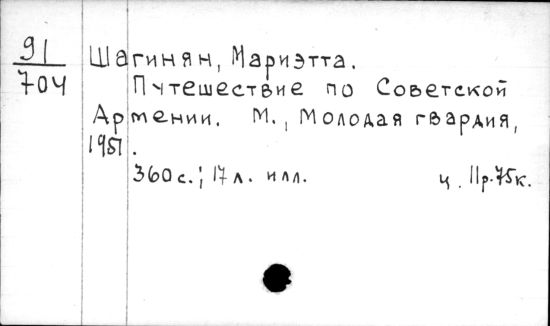 91
704
Шагинян, Мариэтта.
Путешествие по Советской
Армении. М., Молодая гвардия,
1951.
360 с.; 17 л. илл. ц. 11р.75к.